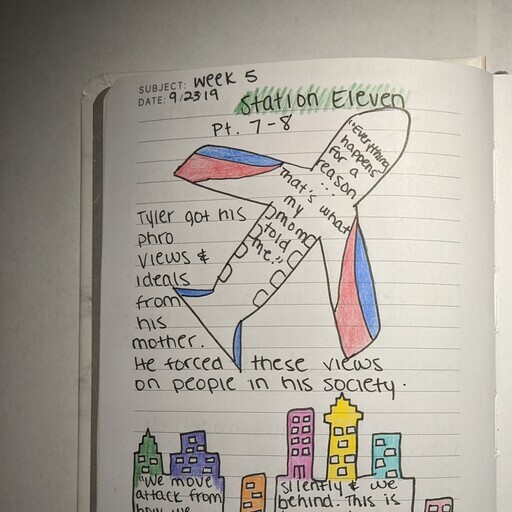 SUBJECT: Week 5
DATE: 9/23/19
Station Eleven
Pt. 7-8
"Everything
happens
for a
reason
...
That's what
my
mom
told
me."
Tyler got his
phro
views &
ideals
from
his
mother.
He forced these views
on people in his society.
"We move
attack from
how we
silently & we
behind. This is